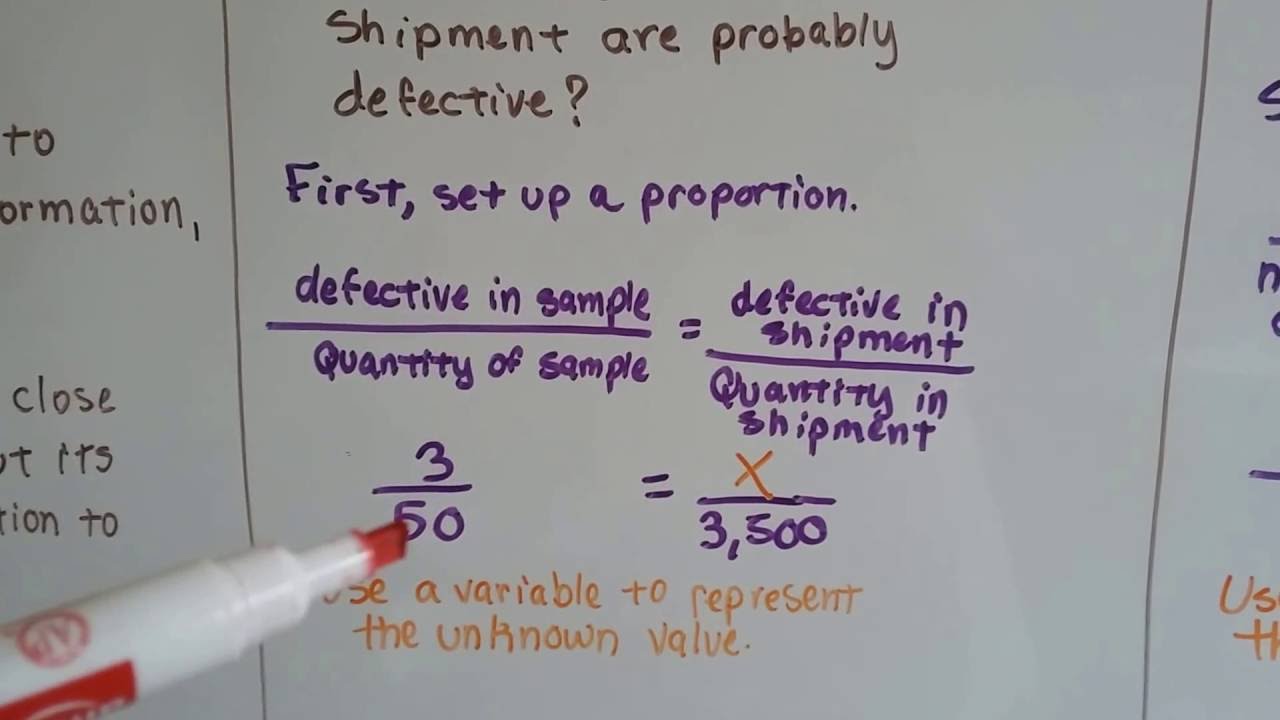 to
ormation,
close
its
tion to
Shipment are probably
defective?
First, set up a proportion.
defective in sample
Quantity of sample
=
defective in
shipment
Quantity in
shipment
3
50
=
X
3,500
use a variable to represent
the unknown value.
Us
th